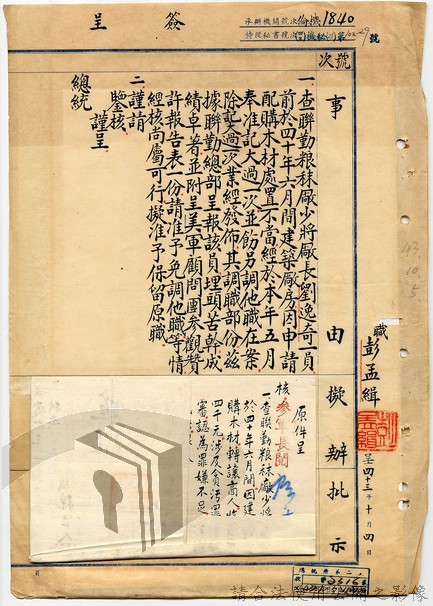 簽呈
承辦機關號次倫機1840
侍從秘書號次
號
號次
事由擬辦批示
一、查聯勤粮秣廠少將廠長劉逸奇一員
前於四十年六月間建築廠房因申請
配購木材處置不當經於本年五月
奉准記大過一次並飭另調他職在案
除記過一次業經發佈其調職部份茲
據聯勤總部呈報該員埋頭苦幹成
績卓著並附呈美軍顧問團參觀贊
許報告表一份請准予免調他職等情
經核尚屬可行擬准予保留原職
二、謹請
鑒核
謹呈
總統
職彭孟緝
呈四十三年十月四日
43.10.5
原件呈
核
參軍長閱
一查聯勤粮秣廠少將
於四十年六月間因建
購木材轉讓商人
四千元涉及貪污罪
審認為罪嫌不足
請合法使用公開之影像